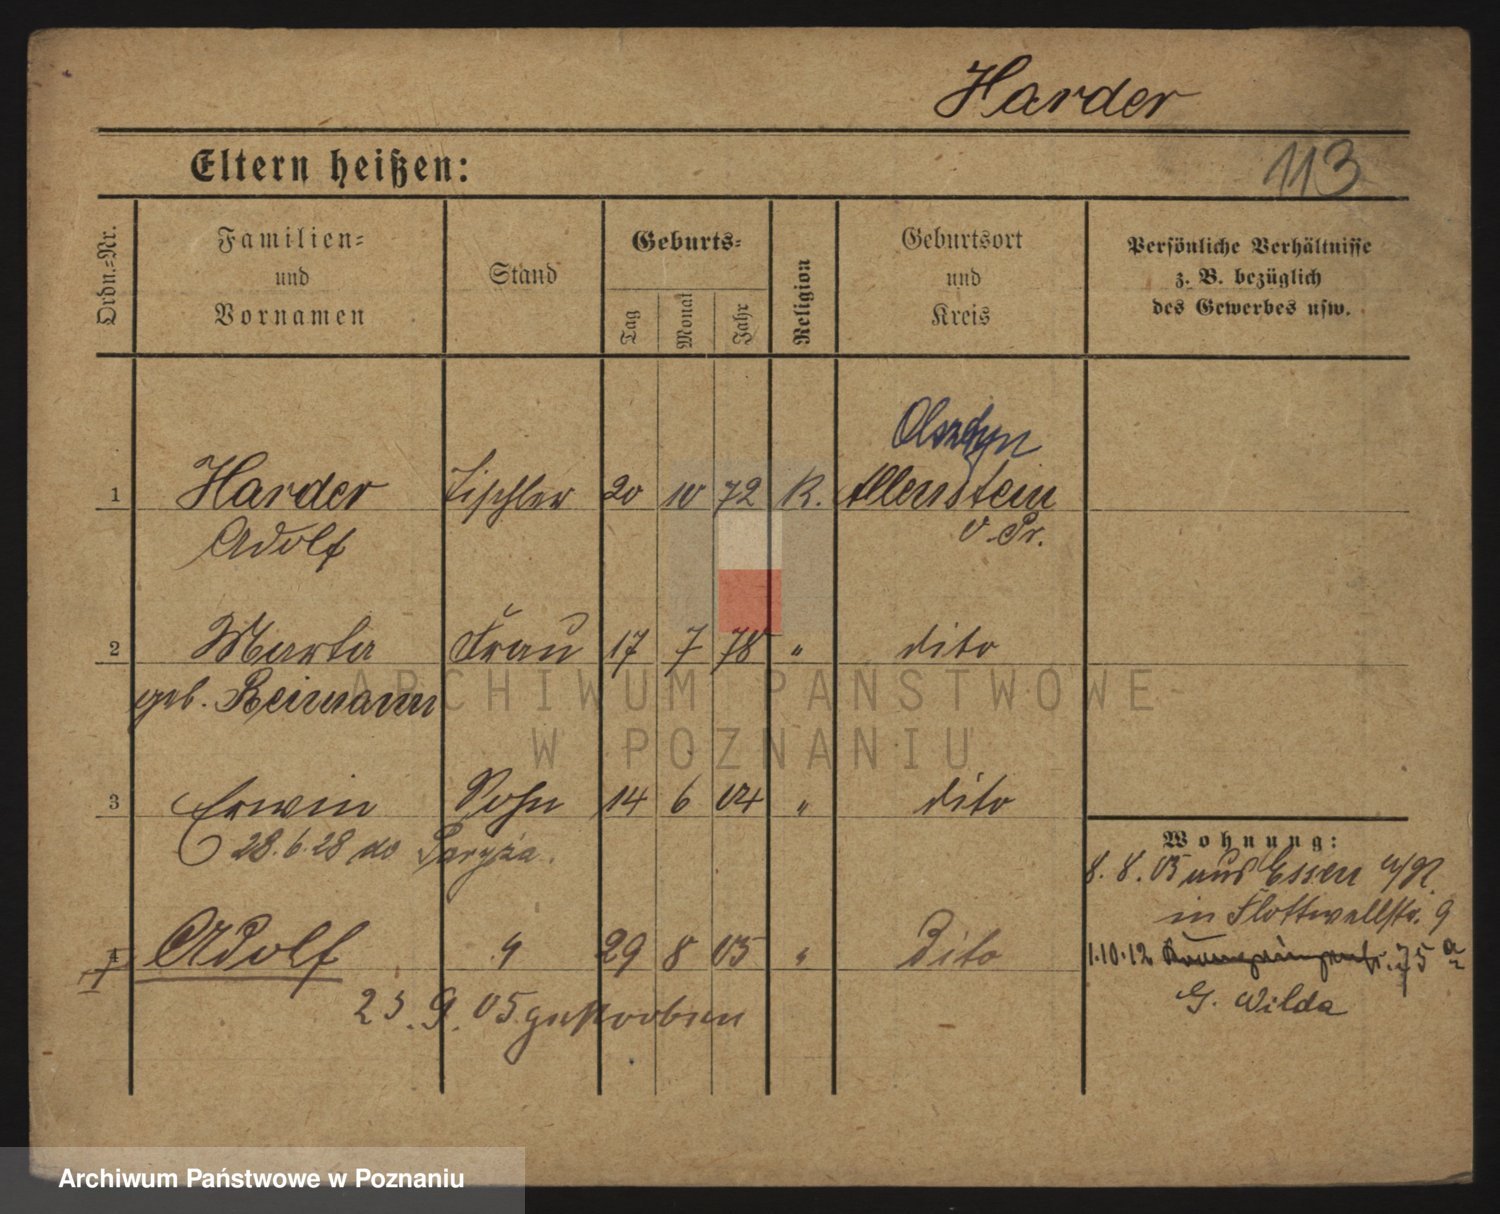 Harder
Eltern heißen:
113
Ordn.-Nr.
Familien-
und
Vornamen
Stand
Geburts-
Tag
Monat
Jahr
Religion
Geburtsort
und
Kreis
Persönliche Verhältnisse
z. B. bezüglich
des Gewerbes usw.
Olsztyn
1 Harder Tischler 20 10 72 K. Allenstein
Adolf O. Pr.
2 Marta Frau 17 7 78 " dito
geb. Reimann
3 Erwin Sohn 14 6 04 " dito
28.6.28 do Paryża.
4 Adolf " 29 8 05 " Dito
23.9.05 gestorben
Wohnung:
8.8.05 aus Essen a/R.
in Flottwellstr. 9
1.10.12 75
G. Wilda
ARCHIWUM PAŃSTWOWE
W POZNANIU
Archiwum Państwowe w Poznaniu